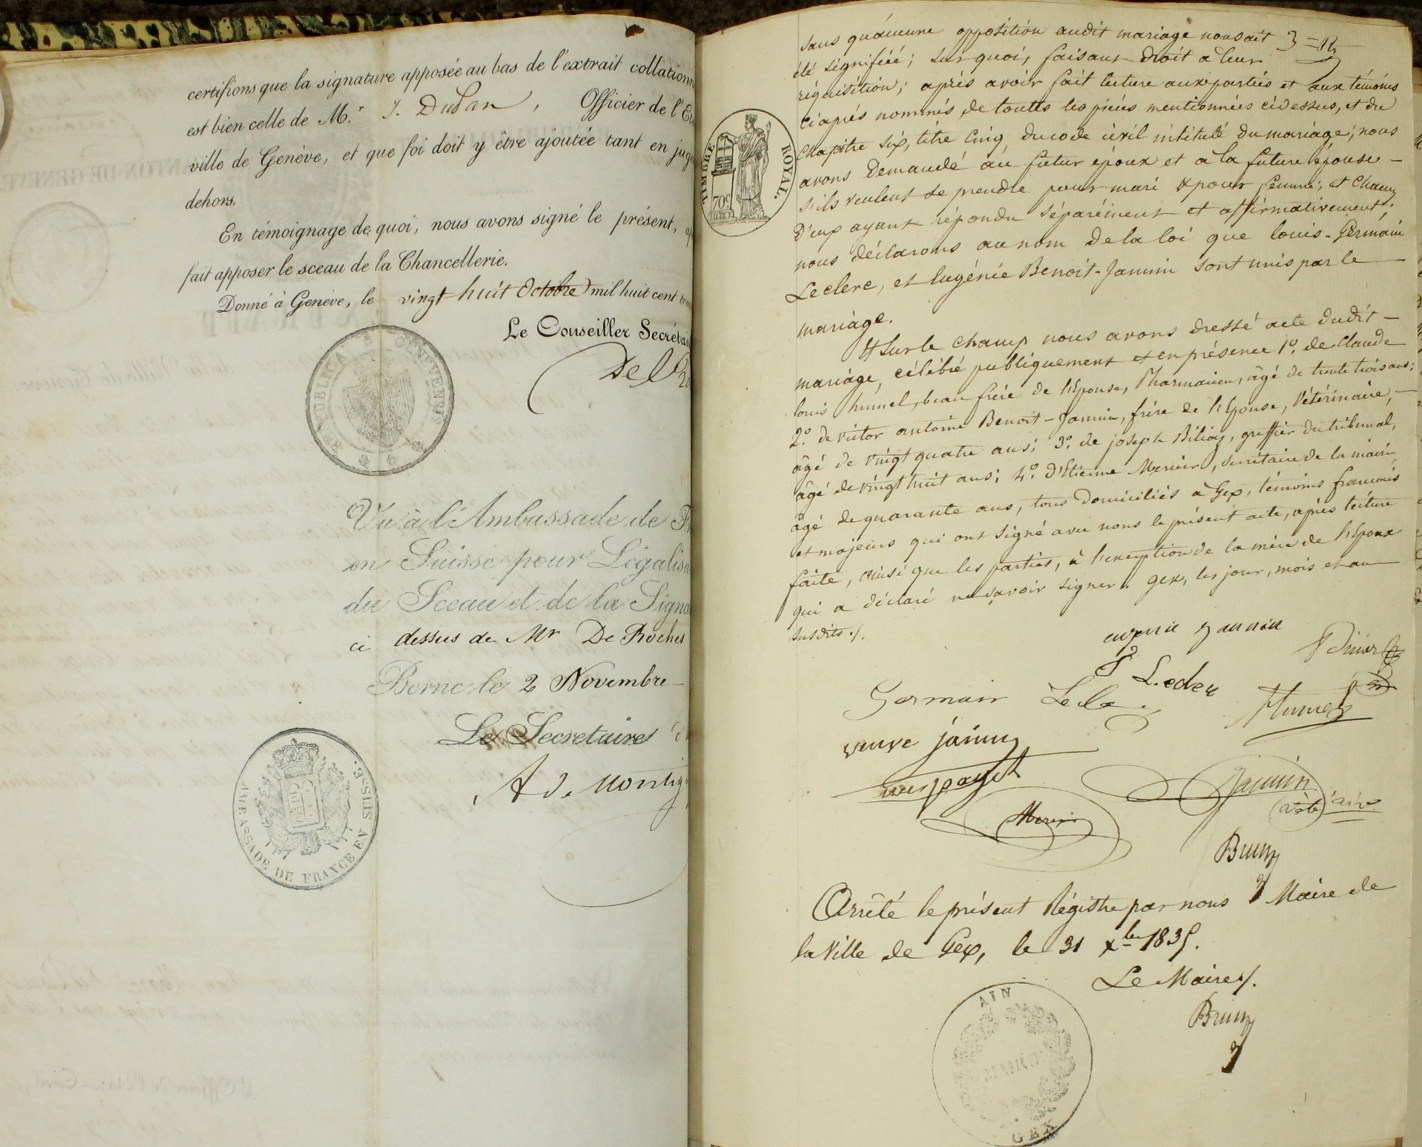 certifions que la signature apposée au bas de l'extrait collationn
est bien celle de Mr. J. DuPan, Officier de l'E
ville de Genève, et que foi doit y être ajoutée tant en jug
dehors.
En témoignage de quoi, nous avons signé le présent,
fait apposer le sceau de la Chancellerie.
Donné à Genève, le vingt huit Octobre mil huit cent
Le Conseiller Secréta
De
GENEVENSIS
Vu à l'Ambassade de F
en Suisse pour Légalisa
du Sceau et de la Signa
ci dessus de Mr De Roches
Berne le 2 Novembre
Le Secretaire
A de Montig
AMBASSADE DE FRANCE EN SUISSE.
TIMBRE ROYAL.
70c
sans qu'aucune opposition audit mariage nous ait
été signifiée; sur quoi, faisant droit à leur
réquisition; après avoir fait lecture aux parties et aux témoins
ci après nommés de toutes les pièces mentionnées ci dessus, et du
Chapitre six, titre Cinq, du code civil intitulé du mariage, nous
avons Demandé au futur époux et à la future épouse
s'ils veulent se prendre pour mari & pour femme; et Chacun
D'eux ayant répondu séparément et affirmativement,
nous déclarons au nom de la loi que Louis-Germain
Leclerc, et Eugénie Benoit-Jannin sont unis par le
mariage.
Et sur le champ nous avons dressé acte dudit
mariage, célébré publiquement et en présence 1º. de Claude
Louis beau frère de l'épouse, Pharmacien, âgé de trente trois ans;
2º. de Victor antoine Benoit-Jannin, frère de l'épouse, Vétérinaire,
âgé de vingt quatre ans; 3º. de joseph greffier du tribunal,
âgé de vingt huit ans; 4º. d'Etienne Mercier, secrétaire de la mairie,
âgé de quarante ans, tous domiciliés à Gex, témoins français
et majeurs qui ont signé avec nous le présent acte, après lecture
faite, ainsi que les parties, à l'exception de la mère de l'époux
qui a déclaré ne savoir signer. Gex, les jour, mois et an
susdits./.
eugenie jannin
Leclerc
Germain Lecle
veuve jannin
Mercier
Jannin
Brun
Arrêté le présent Régistre par nous Maire de
la Ville de Gex, le 31 Xbre 1835.
Le Maire./.
Brun
AIN
MAIRIE
GEX